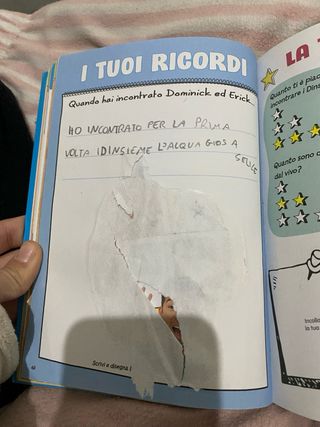 I TUOI RICORDI
Quando hai incontrato Dominick ed Erick...
HO INCONTRATO PER LA PRIMA
VOLTA IDINSIEME L'ACQUA
A
Scrivi e disegna!
LA
Quanto ti è
incontrare i
Quanto sono
dal vivo?
la tua